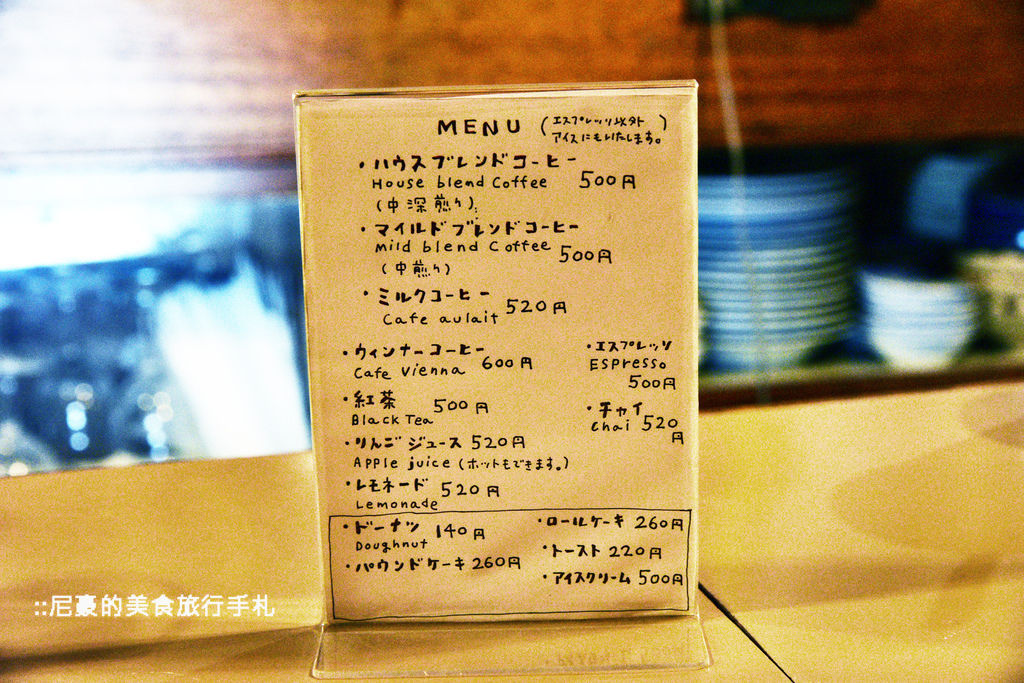 MENU (エスプレッソ以外
アイスにもいたします。)
・ハウスブレンドコーヒー
House blend Coffee 500円
(中深煎り)
・マイルドブレンドコーヒー
mild blend Coffee 500円
(中煎り)
・ミルクコーヒー 520円
Cafe aulait
・ウィンナーコーヒー 600円
Cafe Vienna
・エスプレッソ
ESPresso
500円
・紅茶 500円
Black Tea
・チャイ
Chai 520
円
・りんごジュース 520円
APPle juice (ホットもできます。)
・レモネード 520円
Lemonade
・ドーナツ 140円
Doughnut
・パウンドケーキ 260円
・ロールケーキ 260円
・トースト 220円
・アイスクリーム 500円
::尼豪的美食旅行手札